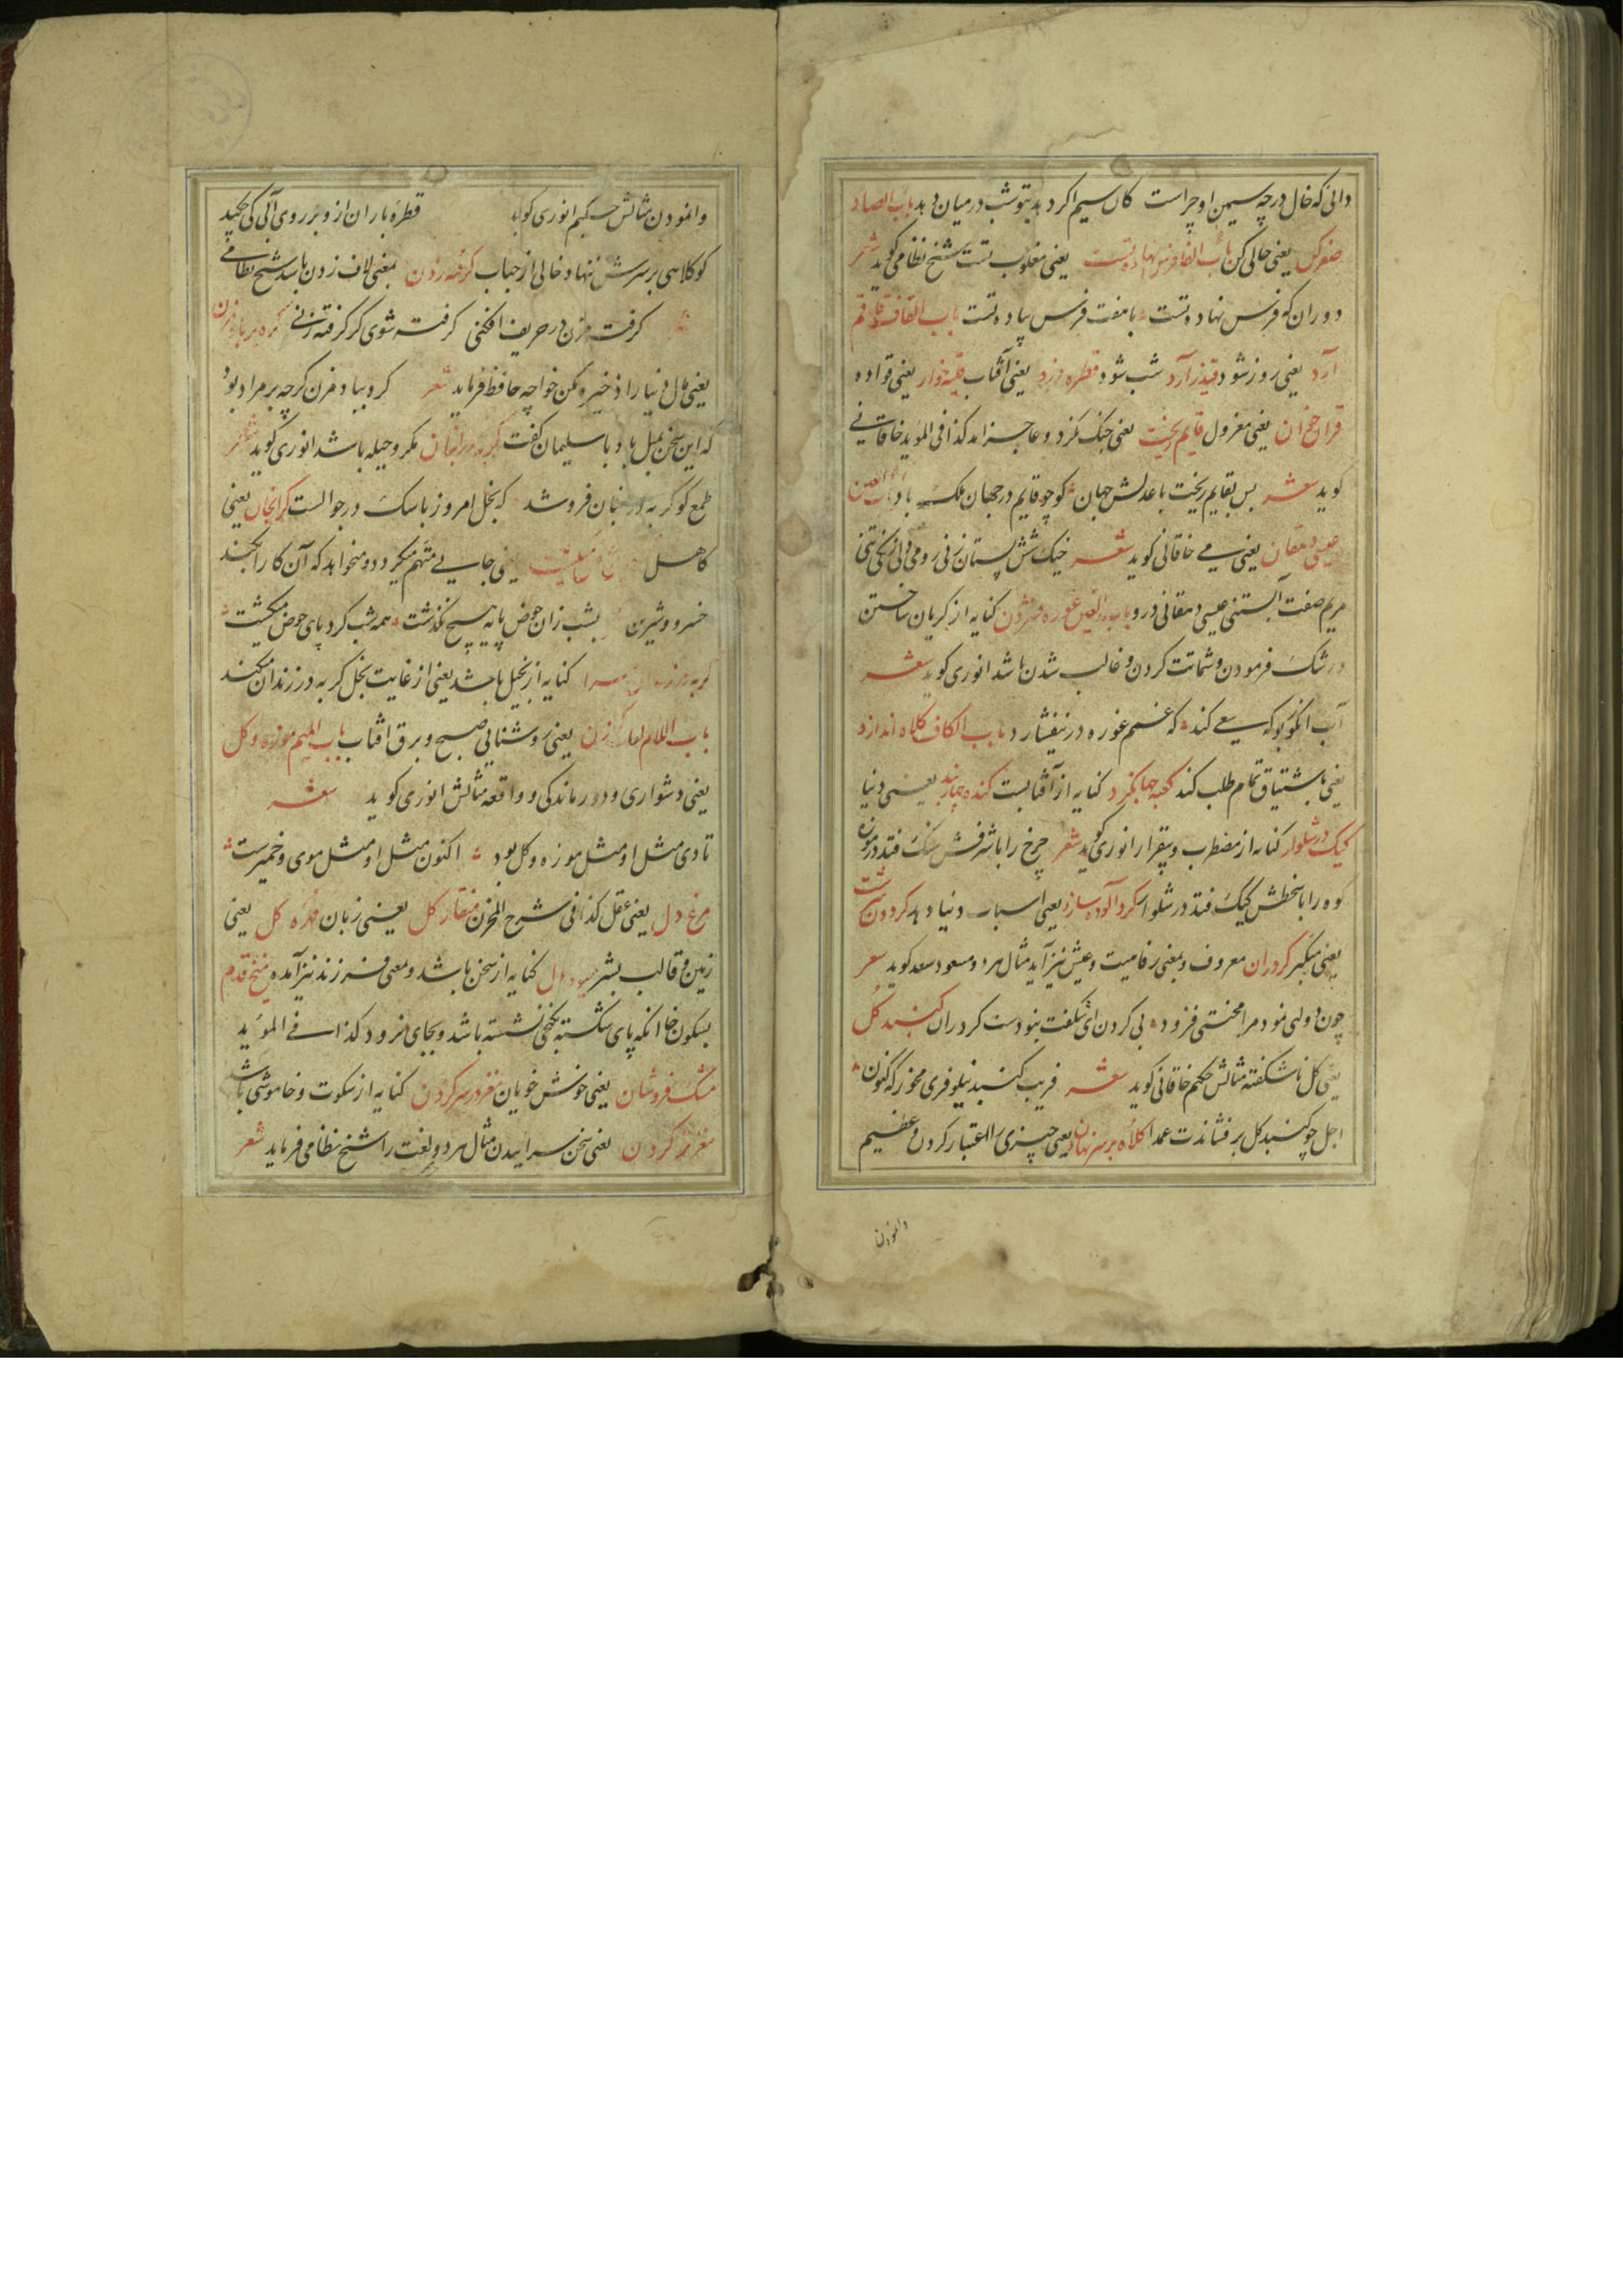 دانی که خال در چه سیمین او چراست کان سیم اگر دهد بتو شب در میان دهد باب الصاد
صفر کن یعنی خالی کن باب الفا فرس نهاده تست یعنی مغلوب تست شیخ نظامی کوید شعر
دوران که فرس نهاده تست با هفت فرس پیاده تست باب القاف
آرد یعنی روز شود قیذر آرد شب شود قطره دزد یعنی آفتاب یعنی قواده
یعنی معزول قایم بریخت یعنی جنک نکرد و عاجز امد کذا فی المؤید خاقانی
کوید شعر بس بقایم ریخت با عدلش جهان کو چو قایم در جهان ملک باد باب العین
عیسی دهقان یعنی می خاقانی کوید شعر خیک شش پستان زنی رومی دلی زنکی تنی
مریم صفت آبستنی عیسی دهقانی درو باب الغین غوره فشردن کنایه از کریان ساختن
و رشک فرمودن و شماتت کردن و غالب شدن باشد انوری کوید شعر
آب انکور کو که سعی کند که غم غوره در نیفشارد باب الکاف کلاه اندازد
یعنی باشتیاق تمام طلب کند کعبه جهانکرد کنایه از آفتابست کنده چار بند یعنی دنیا
کیک در شلوار کنایه از مضطرب و بیقرار انوری کوید شعر چرخ را با شرفش سنک فتد در موزه
کوه را با سخطش کیک فتد در شلوار کرد آلوده سازد یعنی اسباب دنیا دهد کردون پشت
یعنی متکبر کردران معروف و بمعنی رفاهیت و عیش نیز آید مثال هر دو مسعود سعد کوید شعر
چون دولتی نمود مرا محنتی فزود بی کردن ای شکفت نبودست کردران کنبد کل
یعنی کل ناشکفته مثالش حکیم خاقانی کوید شعر فریب کنبد نیلوفری مخور که کنون
اجل چو کنبد کل برفشاندت عمدا کلاه بر سر نهادن یعنی چیزی را اعتبار کردن و عظیم
وانمودن
وانمودن مثالش حکیم انوری کوید قطره باران ازو بر روی آبی کی چکید
کو کلاهی بر سرش ننهاد خالی از حباب کرفته زدن بمعنی لاف زدن باشد شیخ نظامی
کرفته مزن در حریف افکنی کرفته شوی کر کرفته زنی کره بر باد مزن
یعنی مال دنیا را ذخیره مکن خواجه حافظ فرماید شعر کره بباد مزن کرچه بر مراد بود
که این سخن بمثل باد با سلیمان کفت کربه در انبان مکر و حیله باشد انوری کوید شعر
طمع کو کربه در انبان فروشد که بخل امروز با سک در جوالست کرانجان یعنی
کاهل یعنی جایی متهم میکردد و میخواهد که آن کار را بکند
خسرو و شیرین بشب زان حوض پایه هیچ نکذشت همه شب کرد پای حوض میکشت
کنایه از بخیل باشد یعنی از غایت بخل کربه در زندان میکند
باب اللام یعنی روشنایی صبح و برق آفتاب باب المیم موزه و کل
یعنی دشواری و درماندکی و واقعه مثالش انوری کوید شعر
تا دی مثل او مثل موزه و کل بود اکنون مثل او مثل موی و خمیرست
مرغ دل یعنی عقل کذا فی شرح المخزن منقار کل یعنی زبان مهره کل یعنی
زمین و قالب بشر میوه دل کنایه از سخن باشد و بمعنی فرزند نیز آمده میخ قدم
بسکون خا انکه پای شکسته بکنجی نشسته باشد و بجای فرود کذا فی المؤید
مشک فروشان یعنی خوش خویان مغز در سر کردن کنایه از سکوت و خاموشی باشد
مغز تر کردن یعنی سخن سراییدن مثال هر دو لغت را شیخ نظامی فرماید شعر